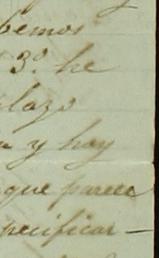 bemos
3º. he
plazo
a y hoy
que parece
pecificar —